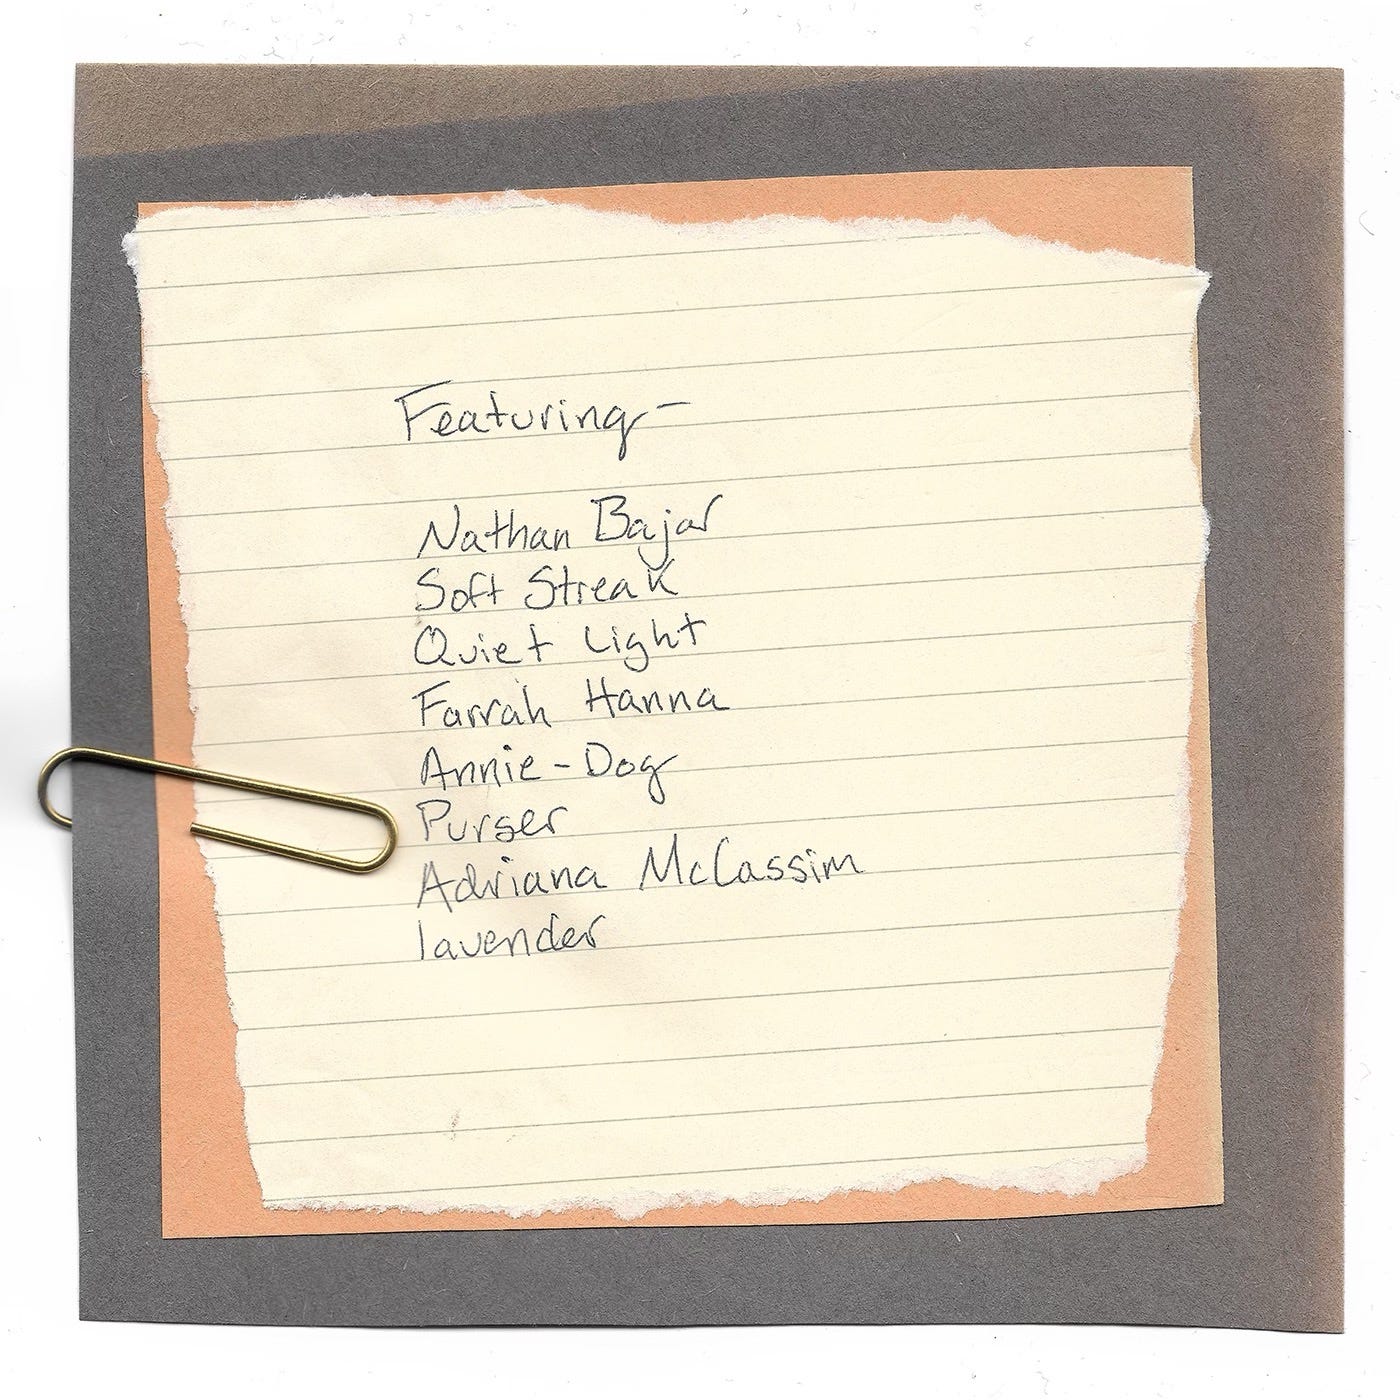 Featuring-
Nathan Bajar
Soft Streak
Quiet Light
Farrah Hanna
Annie-Dog
Purser
Adriana McCassim
lavender